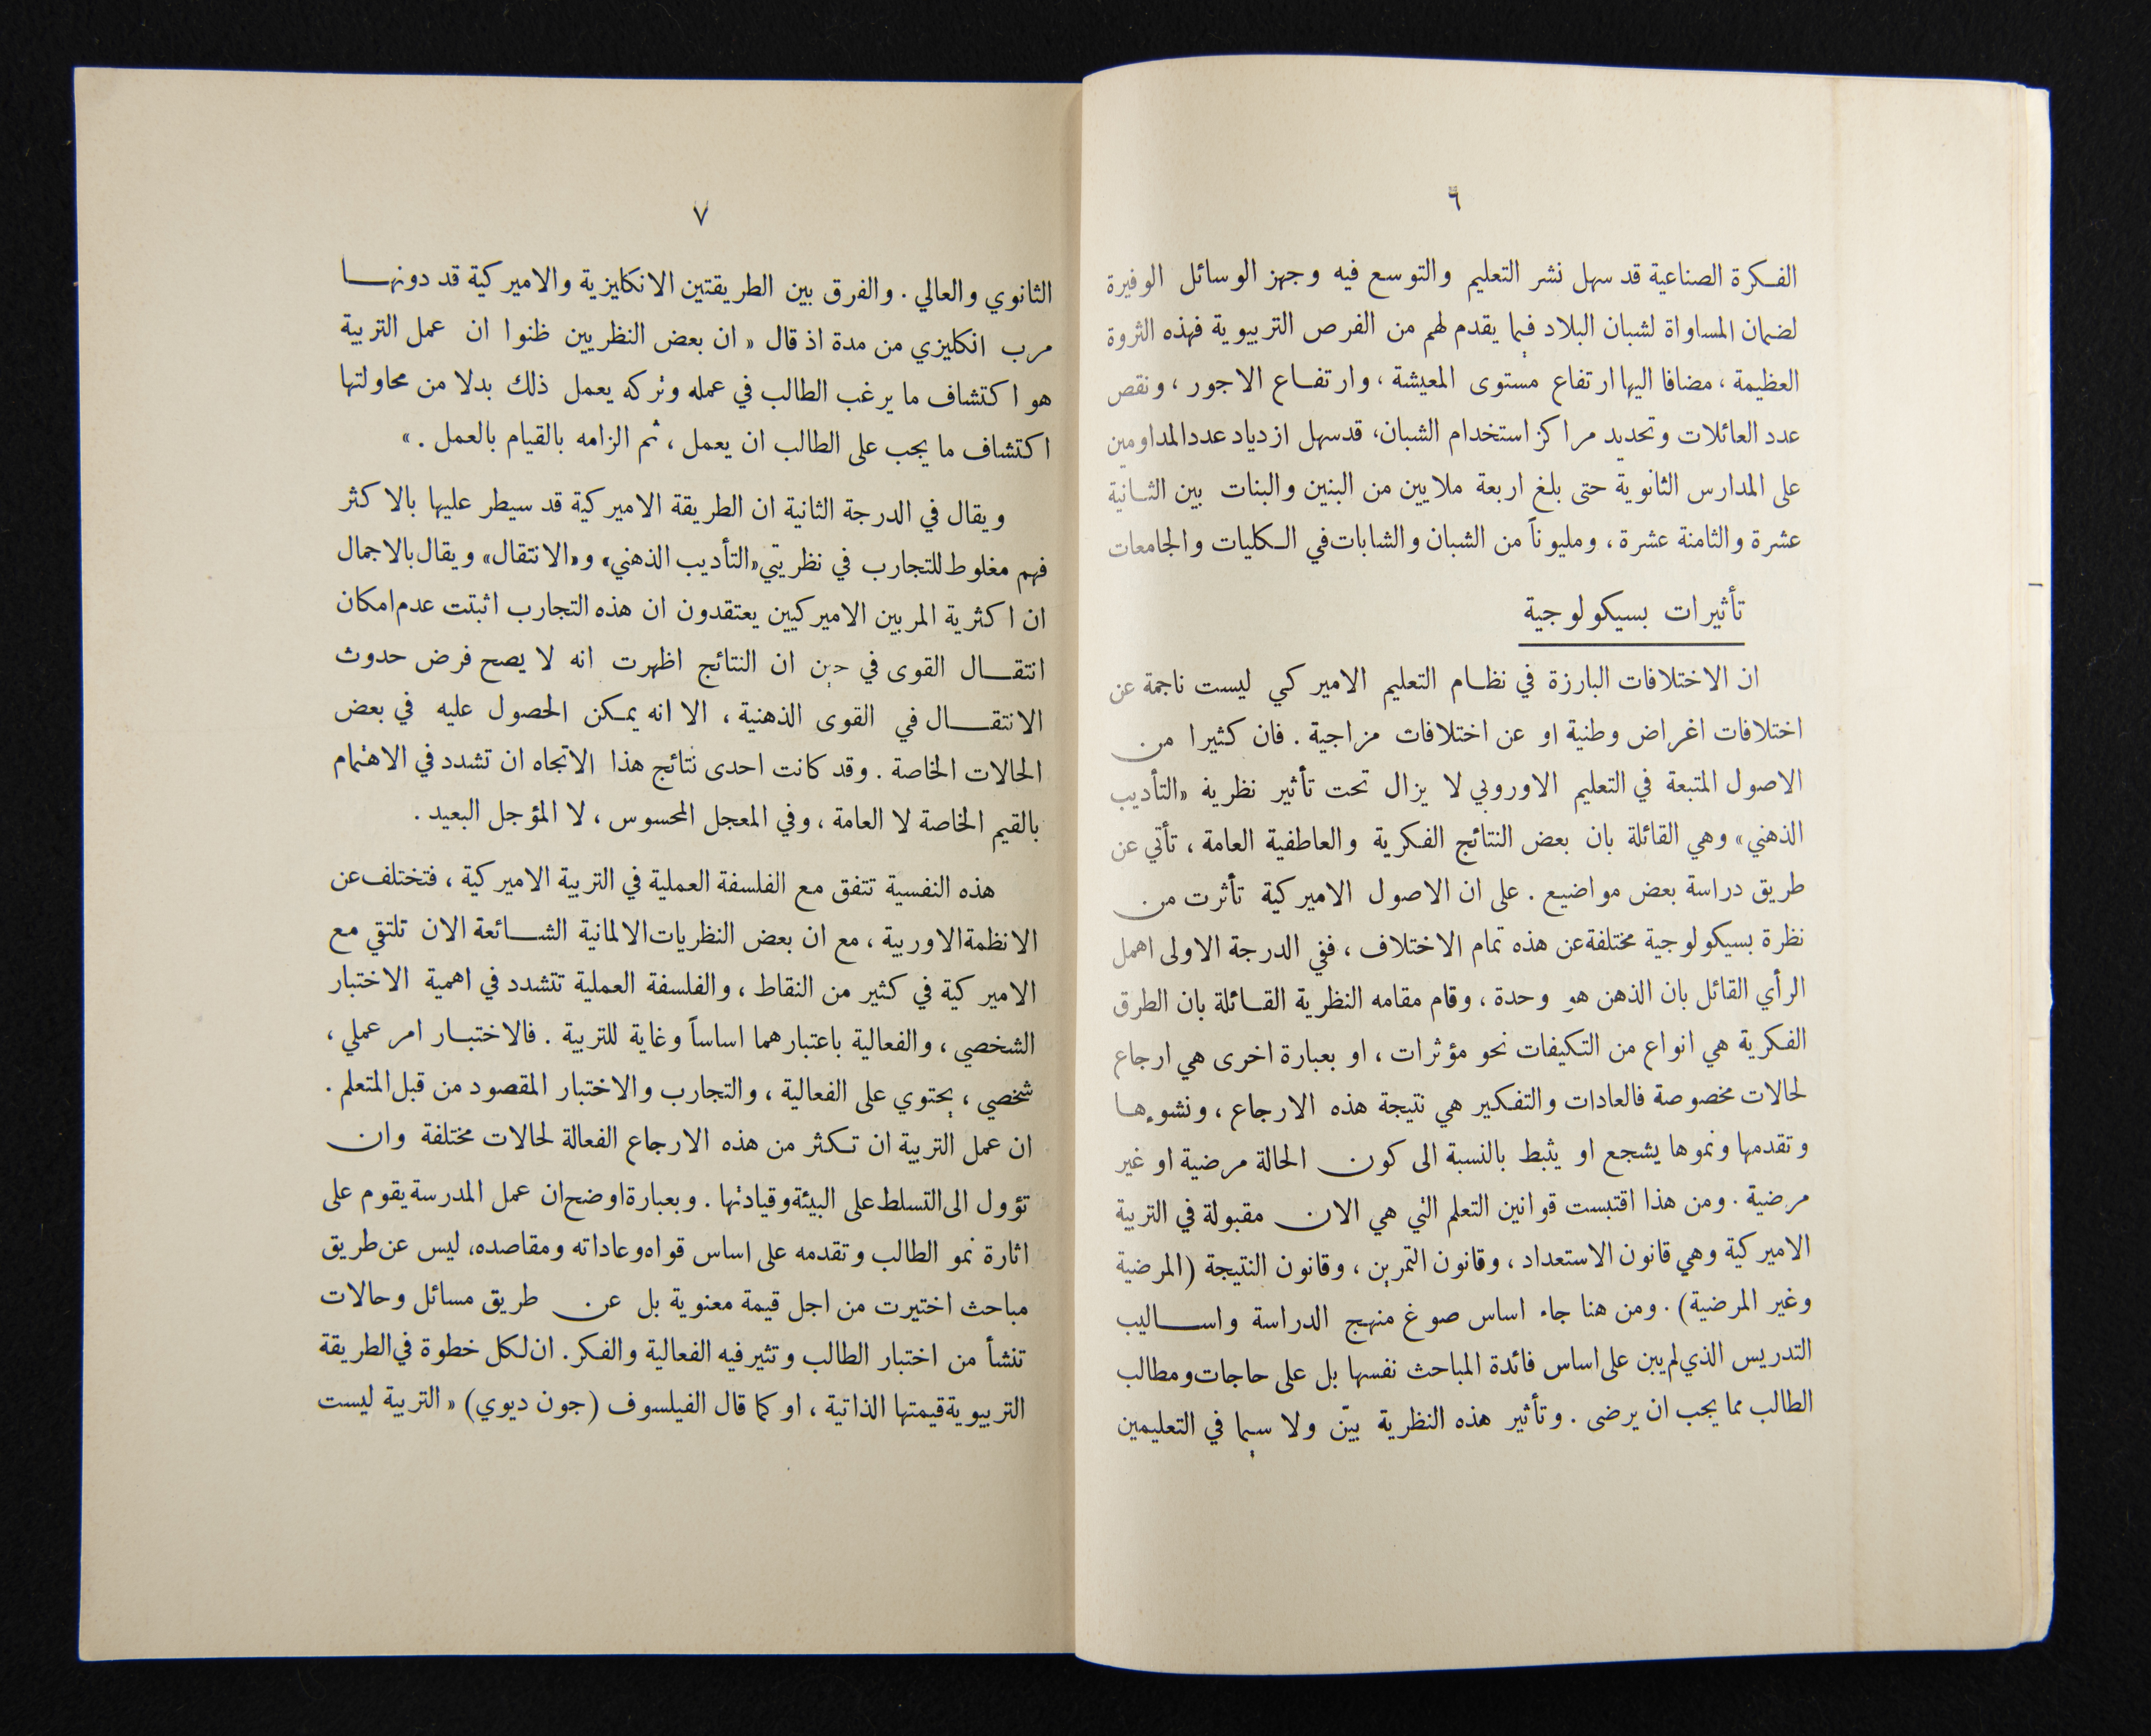 ٦
الفكرة الصناعية قد سهل نشر التعليم والتوسع فيه وجهز الوسائل الوفيرة
لضمان المساواة لشبان البلاد فيما يقدم لهم من الفرص التربيوية فهذه الثروة
العظيمة ، مضافا اليها ارتفاع مستوى المعيشة ، وارتفاع الاجور ، ونقص
عدد العائلات وتحديد مراكز استخدام الشبان، قد سهل ازدياد عدد المداومين
على المدارس الثانوية حتى بلغ اربعة ملايين من البنين والبنات بين الثانية
عشرة والثامنة عشرة ، ومليوناً من الشبان والشابات في الكليات والجامعات
تأثيرات بسيكولوجية
ان الاختلافات البارزة في نظام التعليم الاميركي ليست ناجمة عن
اختلافات اغراض وطنية او عن اختلافات مزاجية . فان كثيرا من
الاصول المتبعة في التعليم الاوروبي لا يزال تحت تأثير نظرية «التأديب
الذهني» وهي القائلة بان بعض النتائج الفكرية والعاطفية العامة ، تأتي عن
طريق دراسة بعض مواضيع . على ان الاصول الاميركية تأثرت من
نظرة بسيكولوجية مختلفة عن هذه تمام الاختلاف ، ففي الدرجة الاولى اهمل
الرأي القائل بان الذهن هو وحدة ، وقام مقامه النظرية القائلة بان الطرق
الفكرية هي انواع من التكيفات نحو مؤثرات ، او بعبارة اخرى هي ارجاع
لحالات مخصوصة فالعادات والتفكير هي نتيجة هذه الارجاع ، ونشوءها
وتقدمها ونموها يشجع او يثبط بالنسبة الى كون الحالة مرضية او غير
مرضية . ومن هذا اقتبست قوانين التعلم التي هي الان مقبولة في التربية
الاميركية وهي قانون الاستعداد ، وقانون التمرين ، وقانون النتيجة (المرضية
وغير المرضية) . ومن هنا جاء اساس صوغ منهج الدراسة واساليب
التدريس الذي لم يبن على اساس فائدة المباحث نفسها بل على حاجات ومطالب
الطالب مما يجب ان يرضى . وتأثير هذه النظرية بيّن ولا سيما في التعليمين
٧
الثانوي والعالي . والفرق بين الطريقتين الانكليزية والاميركية قد دونها
مرب انكليزي من مدة اذ قال « ان بعض النظريين ظنوا ان عمل التربية
هو اكتشاف ما يرغب الطالب في عمله وتركه يعمل ذلك بدلا من محاولتها
اكتشاف ما يجب على الطالب ان يعمل ، ثم الزامه بالقيام بالعمل . »
ويقال في الدرجة الثانية ان الطريقة الاميركية قد سيطر عليها بالاكثر
فهم مغلوط للتجارب في نظريتي «التأديب الذهني» و «الانتقال» ويقال بالاجمال
ان اكثرية المربين الاميركيين يعتقدون ان هذه التجارب اثبتت عدم امكان
انتقال القوى في حين ان النتائج اظهرت انه لا يصح فرض حدوث
الانتقال في القوى الذهنية ، الا انه يمكن الحصول عليه في بعض
الحالات الخاصة . وقد كانت احدى نتائج هذا الاتجاه ان تشدد في الاهتمام
بالقيم الخاصة لا العامة ، وفي المعجل المحسوس ، لا المؤجل البعيد .
هذه النفسية تتفق مع الفلسفة العملية في التربية الاميركية ، فتختلف عن
الانظمة الاوربية ، مع ان بعض النظريات الالمانية الشائعة الان تلتقي مع
الاميركية في كثير من النقاط ، والفلسفة العملية تتشدد في اهمية الاختبار
الشخصي ، والفعالية باعتبارهما اساساً وغاية للتربية . فالاختبار امر عملي ،
شخصي ، يحتوي على الفعالية ، والتجارب والاختبار المقصود من قبل المتعلم .
ان عمل التربية ان تكثر من هذه الارجاع الفعالة لحالات مختلفة وان
تؤول الى التسلط على البيئة وقيادتها . وبعبارة اوضح ان عمل المدرسة يقوم على
اثارة نمو الطالب وتقدمه على اساس قواه وعاداته ومقاصده، ليس عن طريق
مباحث اختيرت من اجل قيمة معنوية بل عن طريق مسائل وحالات
تنشأ من اختبار الطالب وتثير فيه الفعالية والفكر . ان لكل خطوة في الطريقة
التربيوية قيمتها الذاتية ، او كما قال الفيلسوف (جون ديوي) « التربية ليست